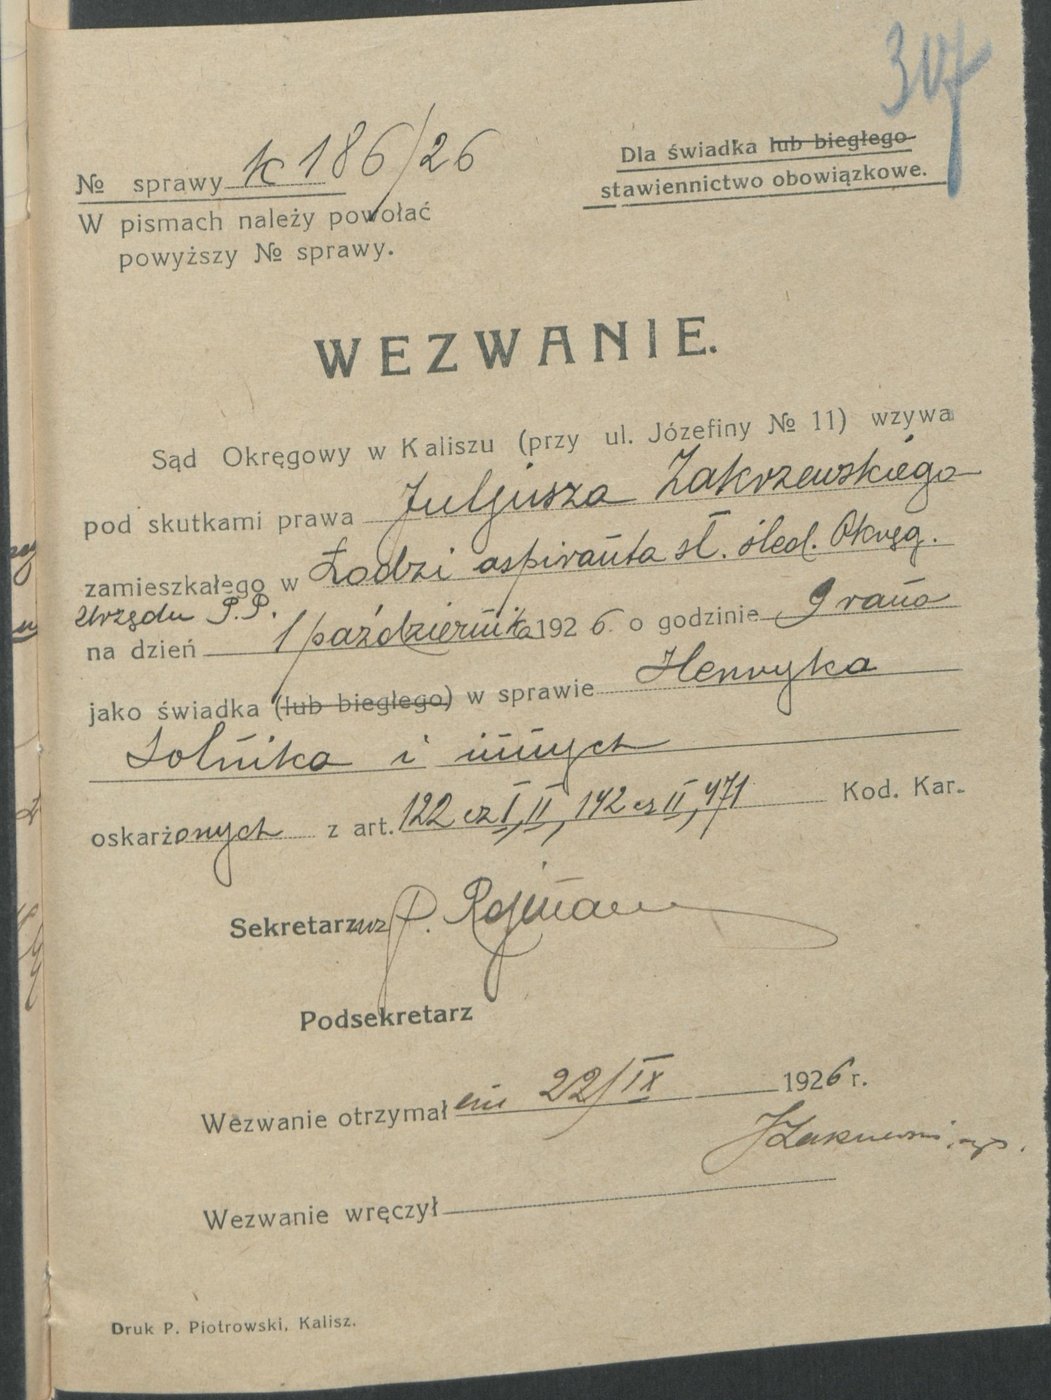 307
№ sprawy K 186/26
Dla świadka lub biegłego
stawiennictwo obowiązkowe.
W pismach należy powołać
powyższy № sprawy.
WEZWANIE.
Sąd Okręgowy w Kaliszu (przy ul. Józefiny № 11) wzywa
pod skutkami prawa Juljusza Zakrzewskiego
zamieszkałego w Łodzi aspiranta sł. śled. Okręg.
Urzędu P.P.
na dzień 1 października 1926 o godzinie 9 rano
jako świadka (lub biegłego) w sprawie Henryka
Solnika i innych
oskarżonych z art. 122 cz I, II, 142 cz II, 471 Kod. Kar.
Sekretarz wz P.
Podsekretarz
Wezwanie otrzymał 22/IX 1926 r.
Wezwanie wręczył
Druk P. Piotrowski, Kalisz.